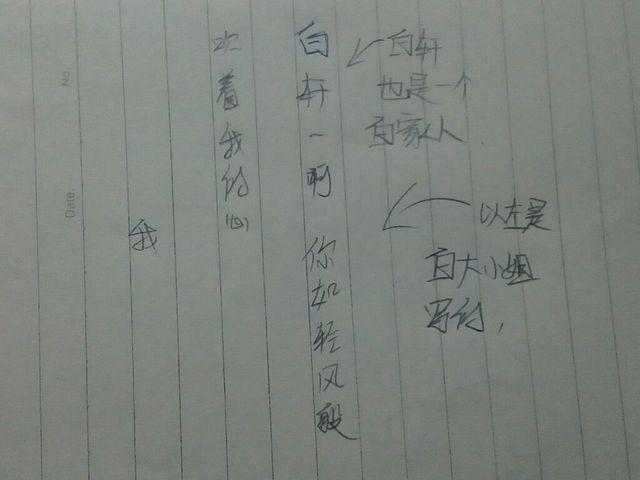 白轩
也是一个
白家人.
以左是
白大小姐
写的,
白轩一啊 你如轻风般
吹着我的心
我
No.
Date.